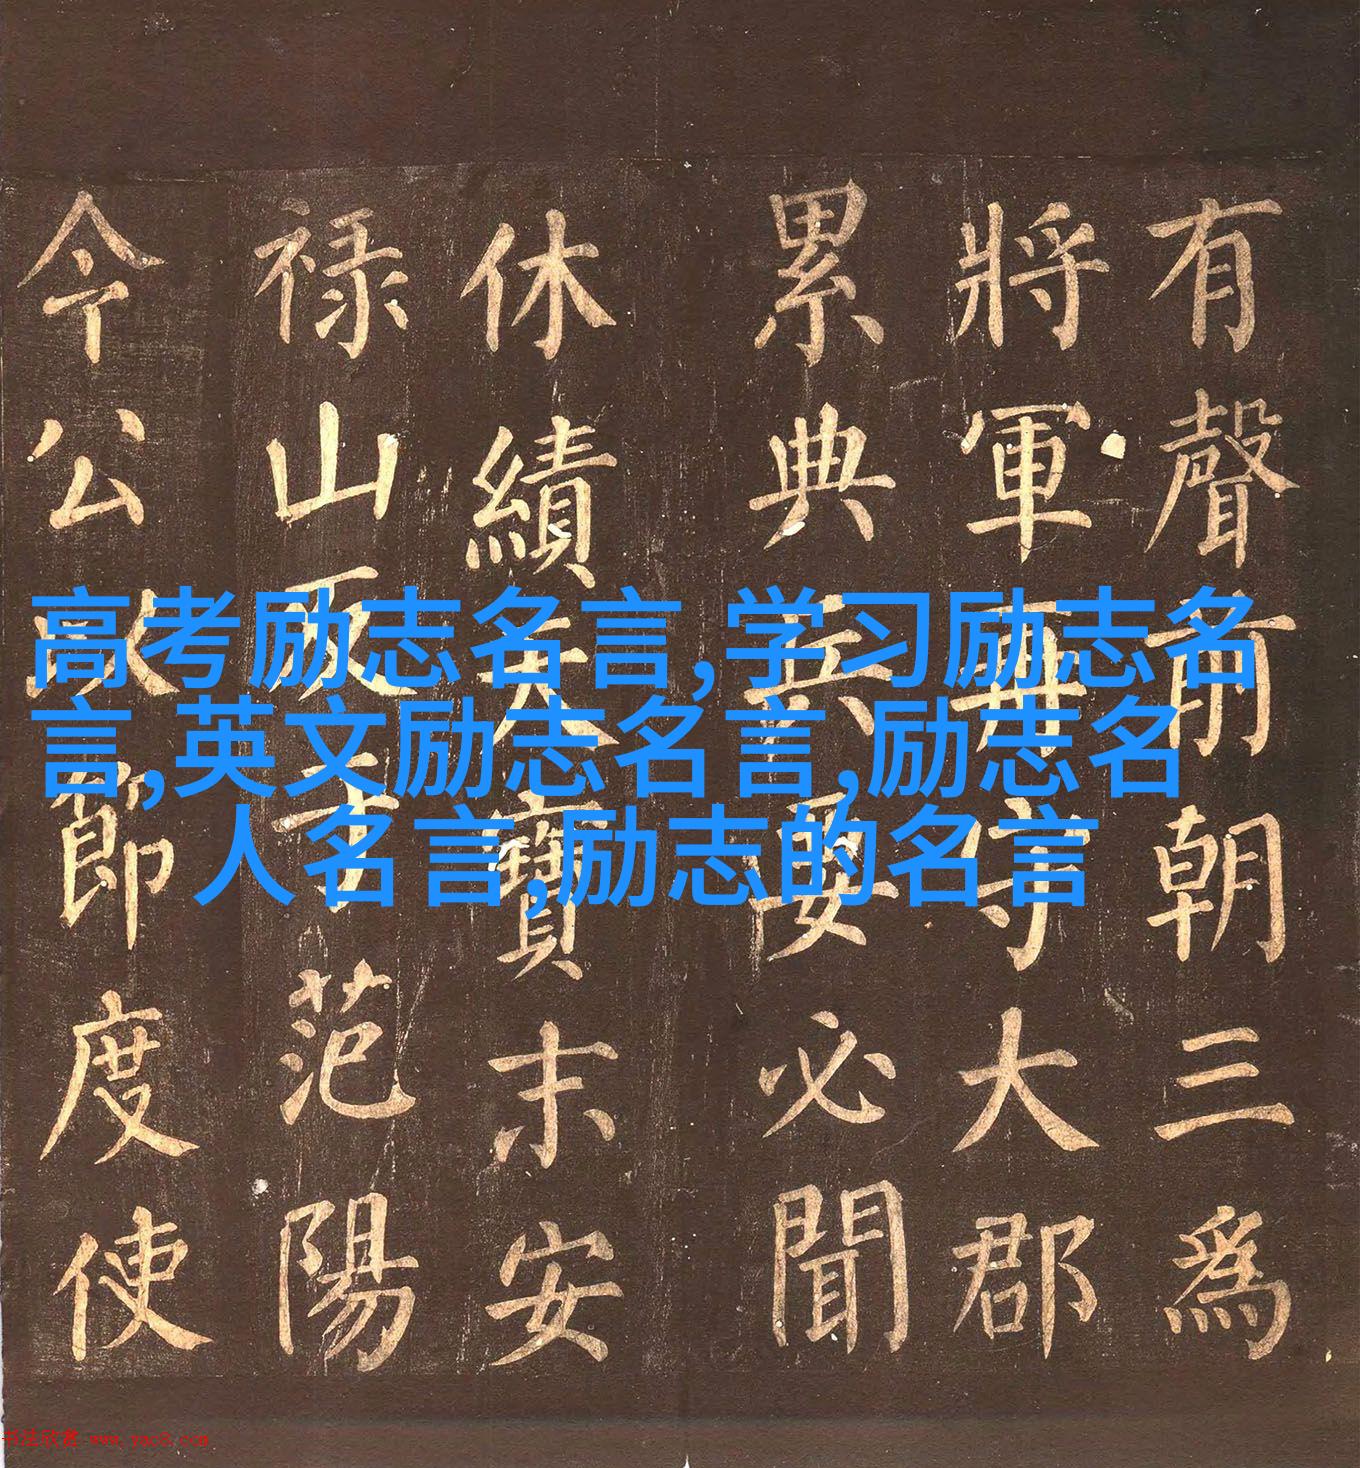 有聲前朝三爲
將軍再守大郡
累典兵要必聞
休績天寶末安
禄山反于范陽
今公節度使
高考励志名言,学习励志名
言,英文励志名言,励志名
人名言,励志的名言
书法欣赏 www.yac8.com